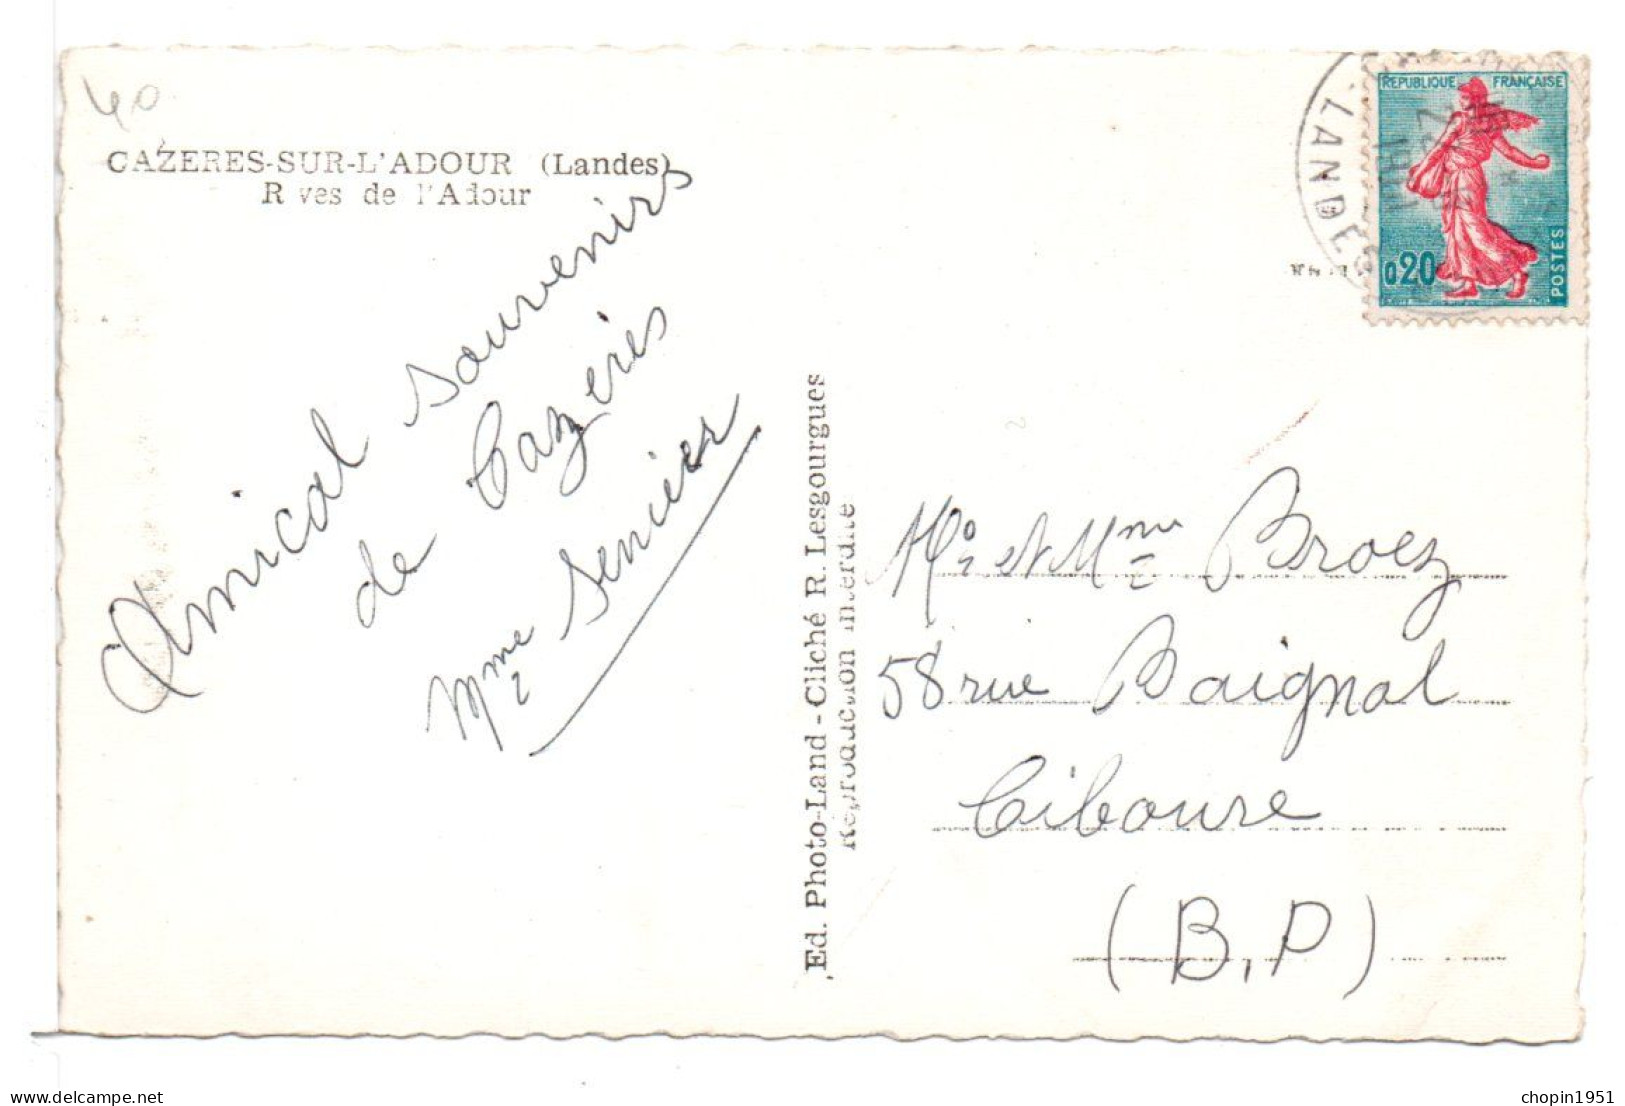 40
CAZERES-SUR-L'ADOUR (Landes)
R ves de l'Adour
Amical souvenirs
de Cazères
Mme Senier
Ed. Photo-Land - Cliché R. Lesgourgues
Reproduction interdite
REPUBLIQUE FRANÇAISE
0,20
POSTES
LANDES
Mr et Mme Broez
58 rue Baignol
Ciboure
(B.P)
chopin1951